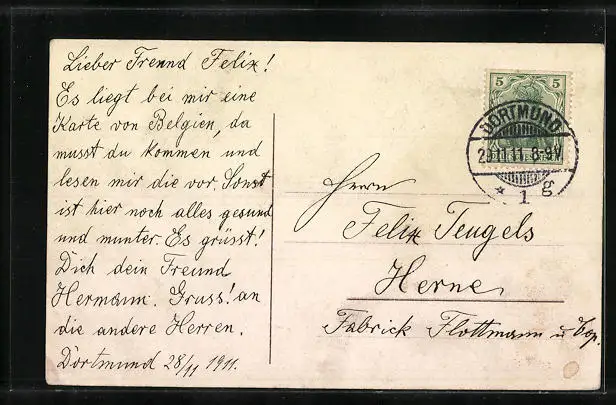 Lieber Freund Felix!
Es liegt bei mir eine
Karte von Belgien, da
musst du kommen und
lesen mir die vor. Sonst
ist hier noch alles gesund
und munter. Es grüsst!
Dich dein Freund
Hermann. Gruss! an
die andere Herren.
Dortmund 28/11 1911.
5 5
DORTMUND
11.11. 8-9V
* 1 g
Herrn
Felix Teugels
Herne
Fabrick Flottmann u